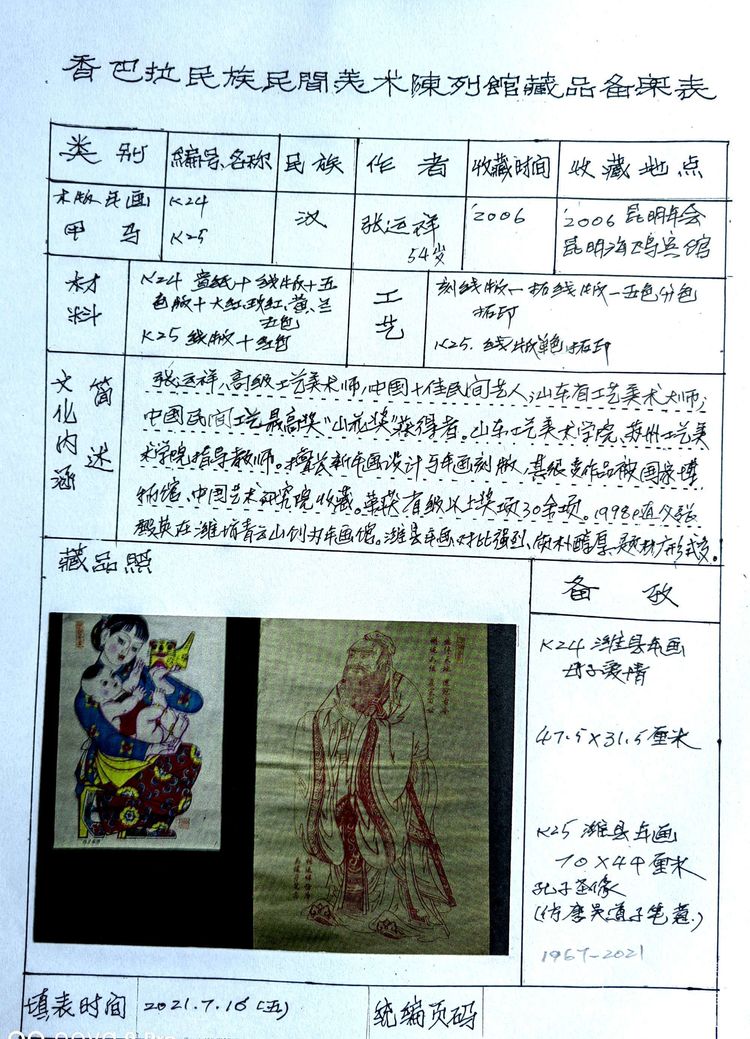 香巴拉民族民間美术陳列館藏品备案表
类别 編号、名称 民族 作者 收藏时间 收藏地点
木版年画 K24 汉 张运祥 2006 2006昆明年会
甲马 K25 54岁 昆明海鸥宾馆
材料 K24 黄纸+线版+五
色版+大红、玫红、黄、兰
五色
K25 线版+红色
工艺 刻线版—拓线版—五色分色
拓印
K25. 线版单色拓印
文化内涵 简述
张运祥,高级工艺美术师,中国十佳民间艺人;山东省工艺美术大师;
中国民间工艺最高奖"山花奖"获得者。山东工艺美术学院、苏州工艺美
术学院指导教师。擅长新年画设计与年画刻版,其经典作品被国家博
物馆、中国艺术研究院收藏。荣获省级以上奖项30余项。1998年随父张
殿英在潍坊青云山创办年画馆。潍县年画,对比强烈、质朴醇厚、题材广形式多。
藏品照
备攷
K24 潍县年画
母子爱情
47.5×31.5厘米
K25 潍县年画
70×44厘米
孔子圣像
(传唐吴道子笔意.)
1967-2021
填表时间 2021.7.16(五) 统编页码